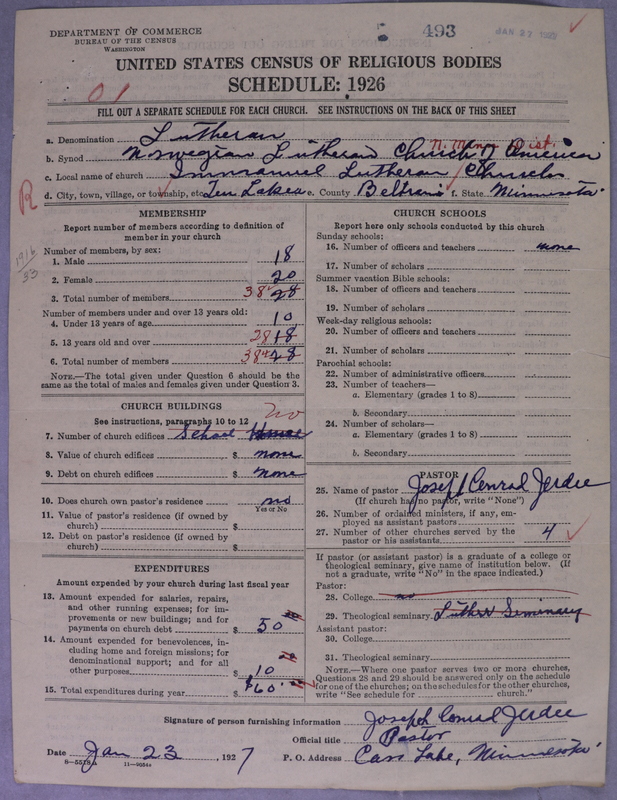 DEPARTMENT OF COMMERCE
BUREAU OF THE CENSUS
WASHINGTON
5 493 JAN 27 1927
UNITED STATES CENSUS OF RELIGIOUS BODIES
SCHEDULE: 1926
01
FILL OUT A SEPARATE SCHEDULE FOR EACH CHURCH. SEE INSTRUCTIONS ON THE BACK OF THIS SHEET
a. Denomination Lutheran
N. Minn. Dist.
b. Synod Norwegian Lutheran Church of America
c. Local name of church Immanuel Lutheran Church
R
d. City, town, village, or township, etc. Ten Lakes e. County Beltrami f. State Minnesota
MEMBERSHIP
Report number of members according to definition of
member in your church
1916
33
Number of members, by sex:
1. Male 18
2. Female 20
3. Total number of members 38 28
Number of members under and over 13 years old:
4. Under 13 years of age 10
5. 13 years old and over 28 18
6. Total number of members 38 28
NOTE.—The total given under Question 6 should be the
same as the total of males and females given under Question 3.
CHURCH BUILDINGS
See instructions, paragraphs 10 to 12 no
7. Number of church edifices School House
8. Value of church edifices $ none
9. Debt on church edifices $ none
10. Does church own pastor's residence no
Yes or No
11. Value of pastor's residence (if owned by
church) $
12. Debt on pastor's residence (if owned by
church) $
EXPENDITURES
Amount expended by your church during last fiscal year
13. Amount expended for salaries, repairs,
and other running expenses; for im-
provements or new buildings; and for
payments on church debt $ 50
14. Amount expended for benevolences, in-
cluding home and foreign missions; for
denominational support; and for all
other purposes $ 10
15. Total expenditures during year $ $60
CHURCH SCHOOLS
Report here only schools conducted by this church
Sunday schools:
16. Number of officers and teachers none
17. Number of scholars
Summer vacation Bible schools:
18. Number of officers and teachers
19. Number of scholars
Week-day religious schools:
20. Number of officers and teachers
21. Number of scholars
Parochial schools:
22. Number of administrative officers
23. Number of teachers—
a. Elementary (grades 1 to 8)
b. Secondary
24. Number of scholars—
a. Elementary (grades 1 to 8)
b. Secondary
PASTOR
25. Name of pastor Joseph Conrad Jerdee
(If church has no pastor, write "None")
26. Number of ordained ministers, if any, em-
ployed as assistant pastors
27. Number of other churches served by the
pastor or his assistants 4
If pastor (or assistant pastor) is a graduate of a college or
theological seminary, give name of institution below. (If
not a graduate, write "No" in the space indicated.)
Pastor:
28. College no
29. Theological seminary Luther Seminary
Assistant pastor:
30. College
31. Theological seminary
NOTE.—Where one pastor serves two or more churches,
Questions 28 and 29 should be answered only on the schedule
for one of the churches; on the schedules for the other churches,
write "See schedule for ........ church."
Signature of person furnishing information Joseph Conrad Jerdee
Official title Pastor
Date Jan 23, 1927 P. O. Address Cass Lake, Minnesota
8-5518a 11-9554a